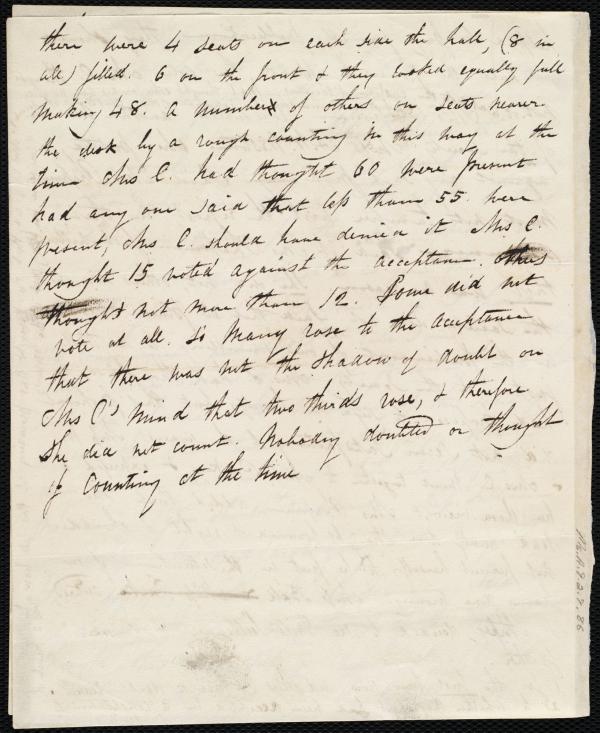 there were 4 seats on each side the hall, (8 in
all) filled. 6 on the front & they looked equally full
making 48. A number of others on seats nearer
the desk by a rough counting in this way at the
time Mrs C. had thought 60 were present
had any one said that less than 55 were
present, Mrs C. should have denied it Mrs C.
thought 15 voted against the acceptance. others
thought not more than 12. Some did not
vote at all. So many rose to the acceptance
that there was not the shadow of doubt on
Mrs C's mind that two thirds rose, & therefore
She did not count. Nobody doubted or thought
of counting at the time